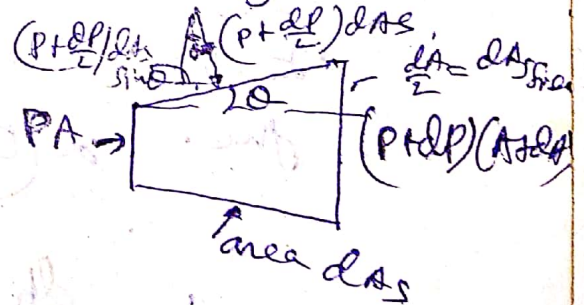 (P+dP/2)dAs sinθ
(P+dP/2)dAs
θ
dA/2 = dAs sinθ
PA →
(P+dP)(A+dA)
area dAs